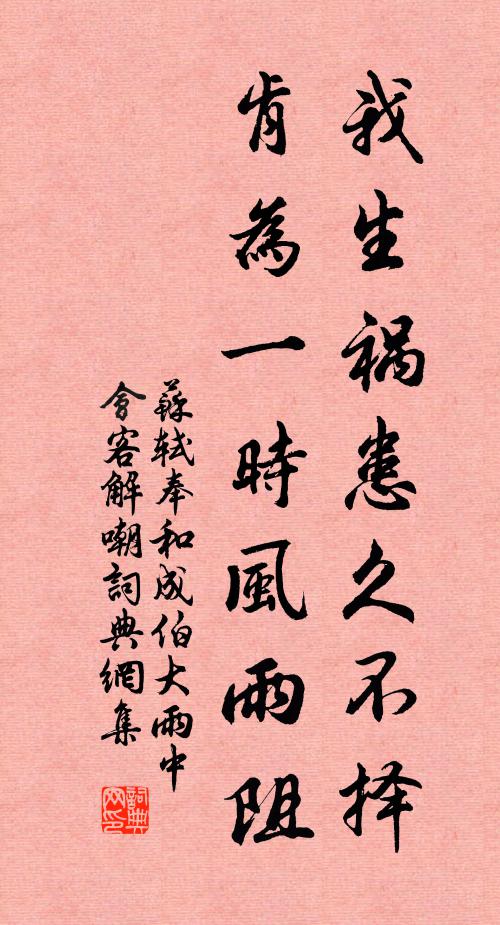 我生祸患久不择
肯為一時風雨阻
蘇軾奉和成伯大雨中
會客解嘲詞典網集
詞典網印